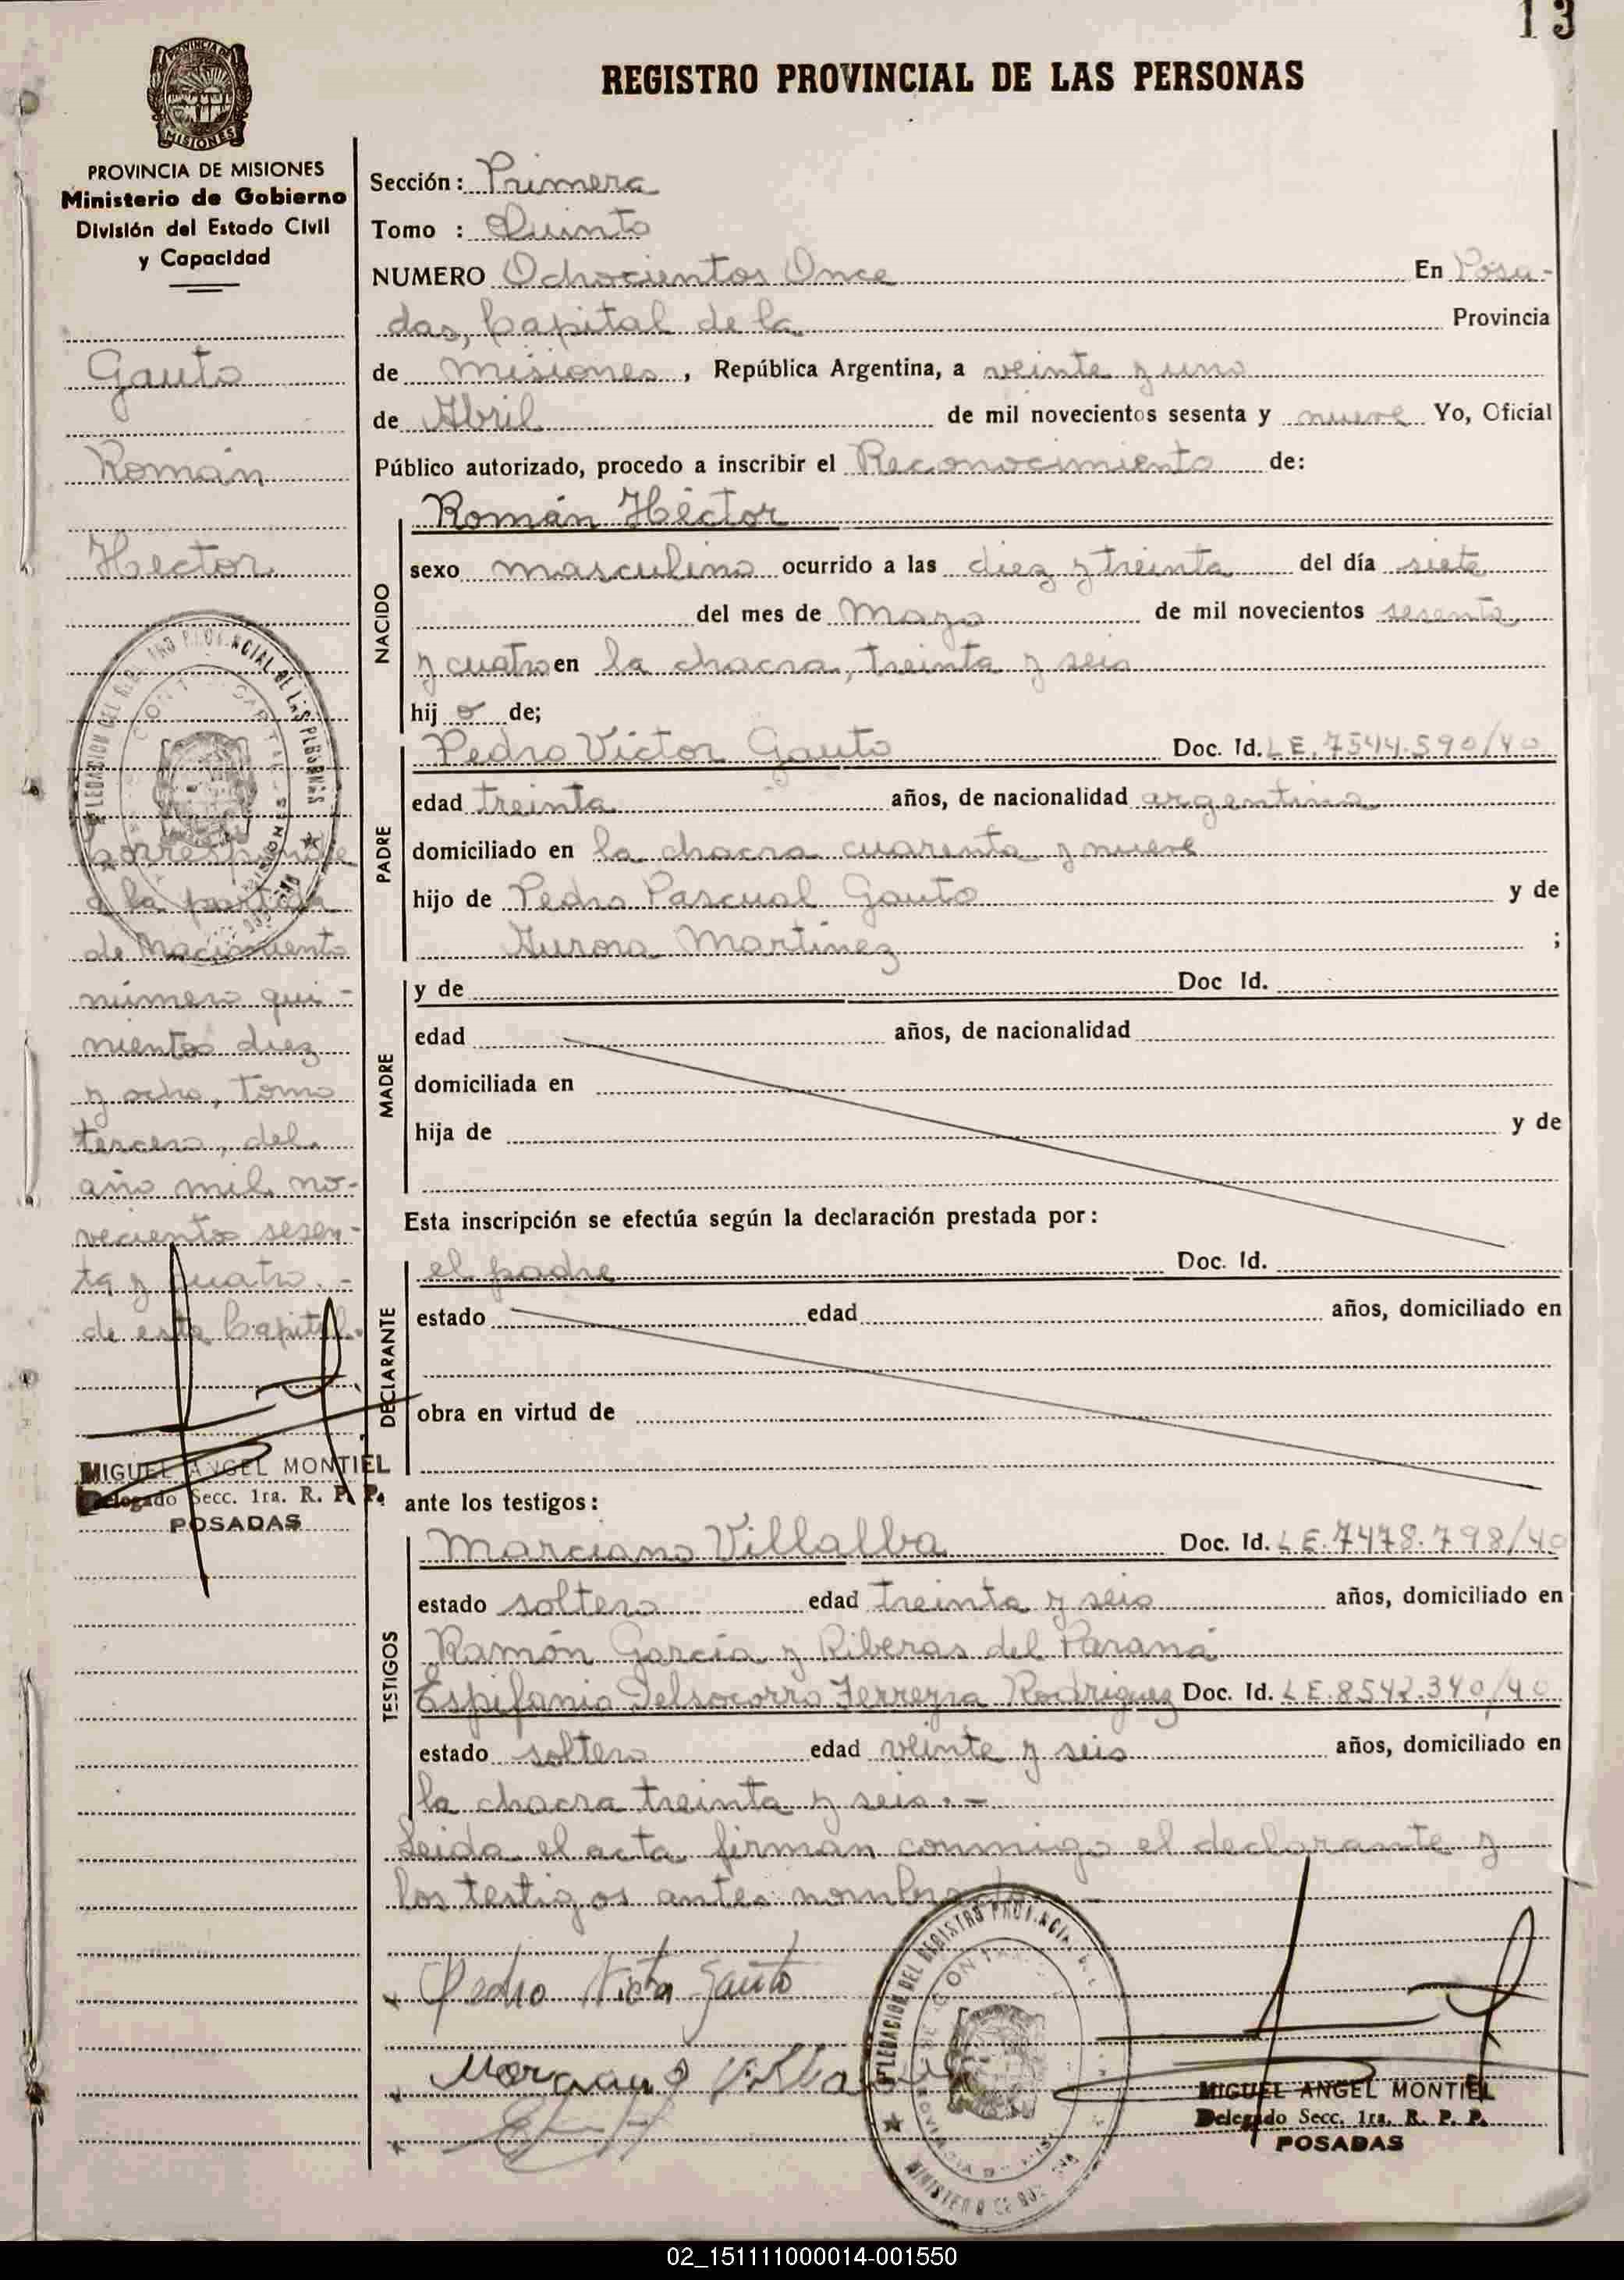 13
REGISTRO PROVINCIAL DE LAS PERSONAS
PROVINCIA DE
MISIONES
PROVINCIA DE MISIONES
Ministerio de Gobierno
División del Estado Civil
y Capacidad
Gauto
Román
Hector
corresponde
a la partida
de Nacimiento
número qui-
nientos diez
y ocho, tomo
tercero, del
año mil no-
veciento sesen-
ta y cuatro.-
de esta Capital.
MIGUEL ANGEL MONTIEL
Delegado Secc. 1ra. R. P. P.
POSADAS
Sección: Primera
Tomo : Quinto
NUMERO Ochocientos Once En Posa-
das, Capital de la Provincia
de Misiones, República Argentina, a veinte y uno
de Abril de mil novecientos sesenta y nueve Yo, Oficial
Público autorizado, procedo a inscribir el Reconocimiento de:
NACIDO
Román Héctor
sexo masculino ocurrido a las diez y treinta del día siete
del mes de Mayo de mil novecientos sesenta
y cuatro en la chacra, treinta y seis
hijo de;
PADRE
Pedro Victor Gauto Doc. Id. L E. 7544.590/40
edad treinta años, de nacionalidad argentina
domiciliado en la chacra cuarenta y nueve
hijo de Pedro Pascual Gauto y de
Aurora Martinez ;
MADRE
y de Doc Id.
edad años, de nacionalidad
domiciliada en
hija de y de
Esta inscripción se efectúa según la declaración prestada por:
DECLARANTE
el padre Doc. Id.
estado edad años, domiciliado en
obra en virtud de
ante los testigos:
TESTIGOS
Marciano Villalba Doc. Id. L E. 7478.798/40
estado soltero edad treinta y seis años, domiciliado en
Ramón García y Riberas del Paraná
Espifanio Delsocorro Ferreyra Rodriguez Doc. Id. L E. 8542.340/40
estado soltero edad veinte y seis años, domiciliado en
la chacra treinta y seis.-
Leida el acta firman conmigo el declarante y
los testigos antes nombrados
Pedro Victor Gauto
Marciano Villalba
MIGUEL ANGEL MONTIEL
Delegado Secc. 1ra. R. P. P.
POSADAS
02_151111000014-001550